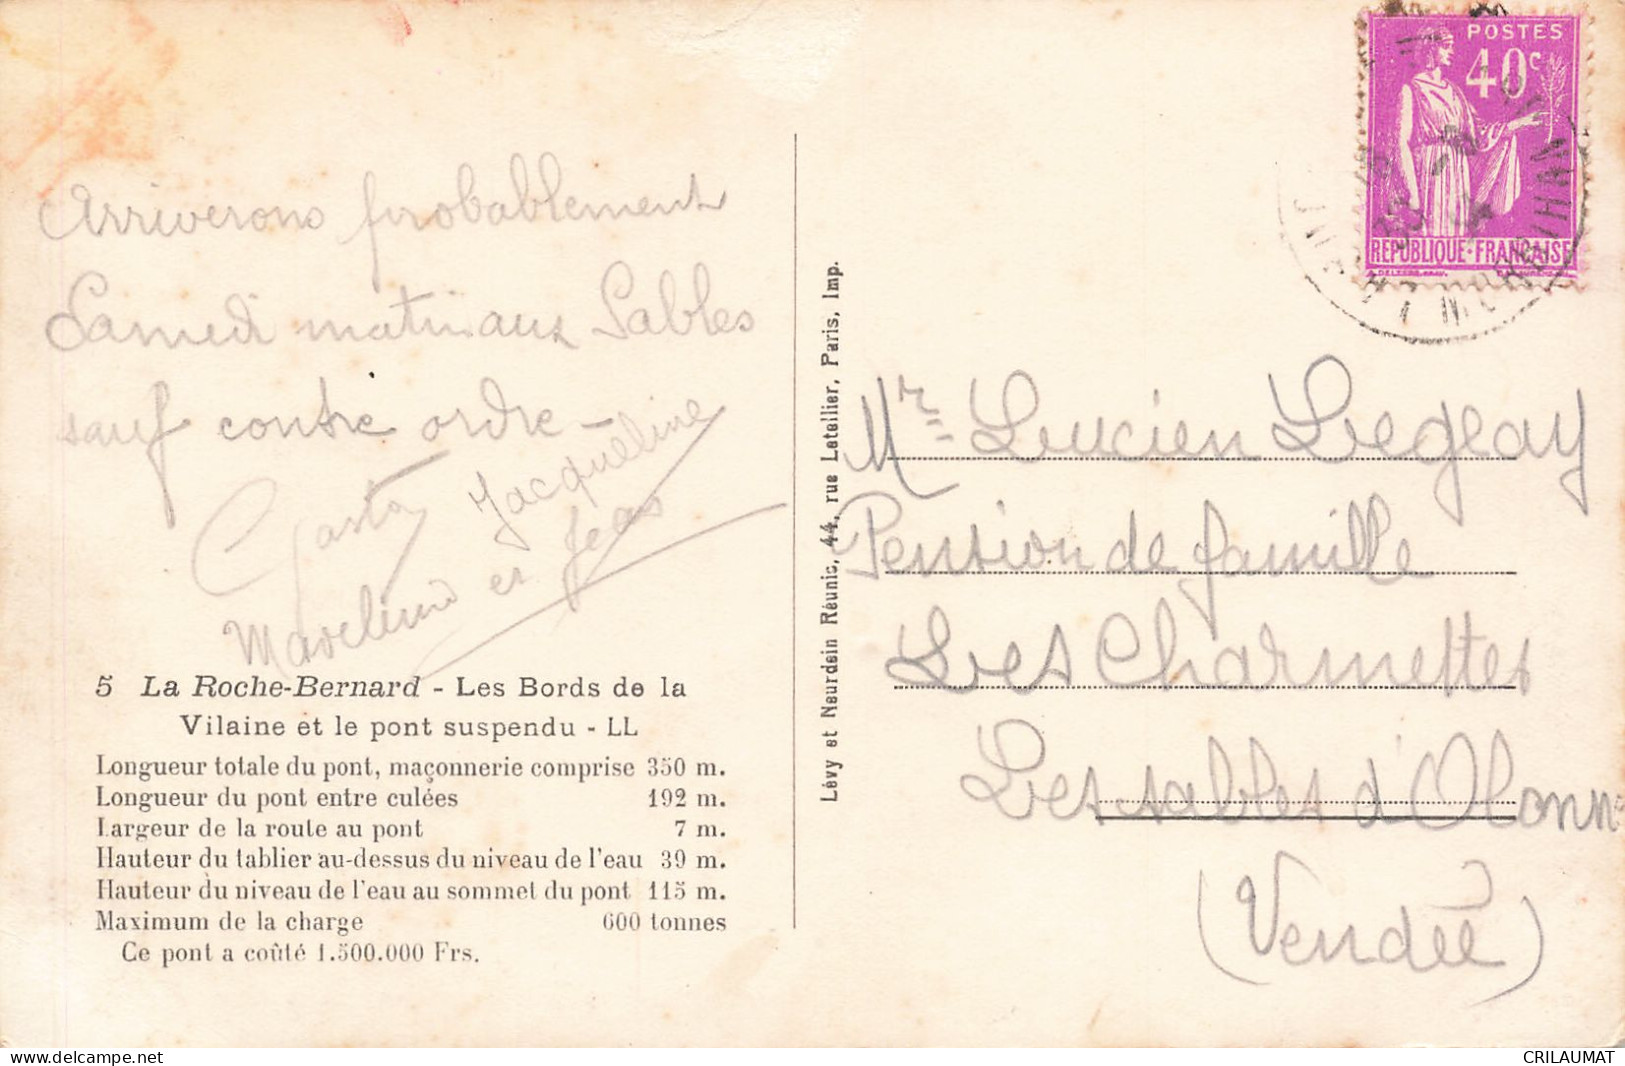 Arriverons probablement
Samedi matin aux Sables
sauf contre ordre –
Jacqueline
et Jean
5 La Roche-Bernard - Les Bords de la
Vilaine et le pont suspendu - LL
Longueur totale du pont, maçonnerie comprise 350 m.
Longueur du pont entre culées 192 m.
Largeur de la route au pont 7 m.
Hauteur du tablier au-dessus du niveau de l'eau 39 m.
Hauteur du niveau de l'eau au sommet du pont 115 m.
Maximum de la charge 600 tonnes
Ce pont a coûté 1.500.000 Frs.
Lévy et Neurdein Réunis, 44, rue Letellier, Paris, Imp.
POSTES
40c
REPUBLIQUE·FRANÇAISE
MORBIHAN
Mr Lucien Legeay
Pension de famille
Les Charmettes
Les sables d'Olonne
(Vendée)
delcampe.net
CRILAUMAT